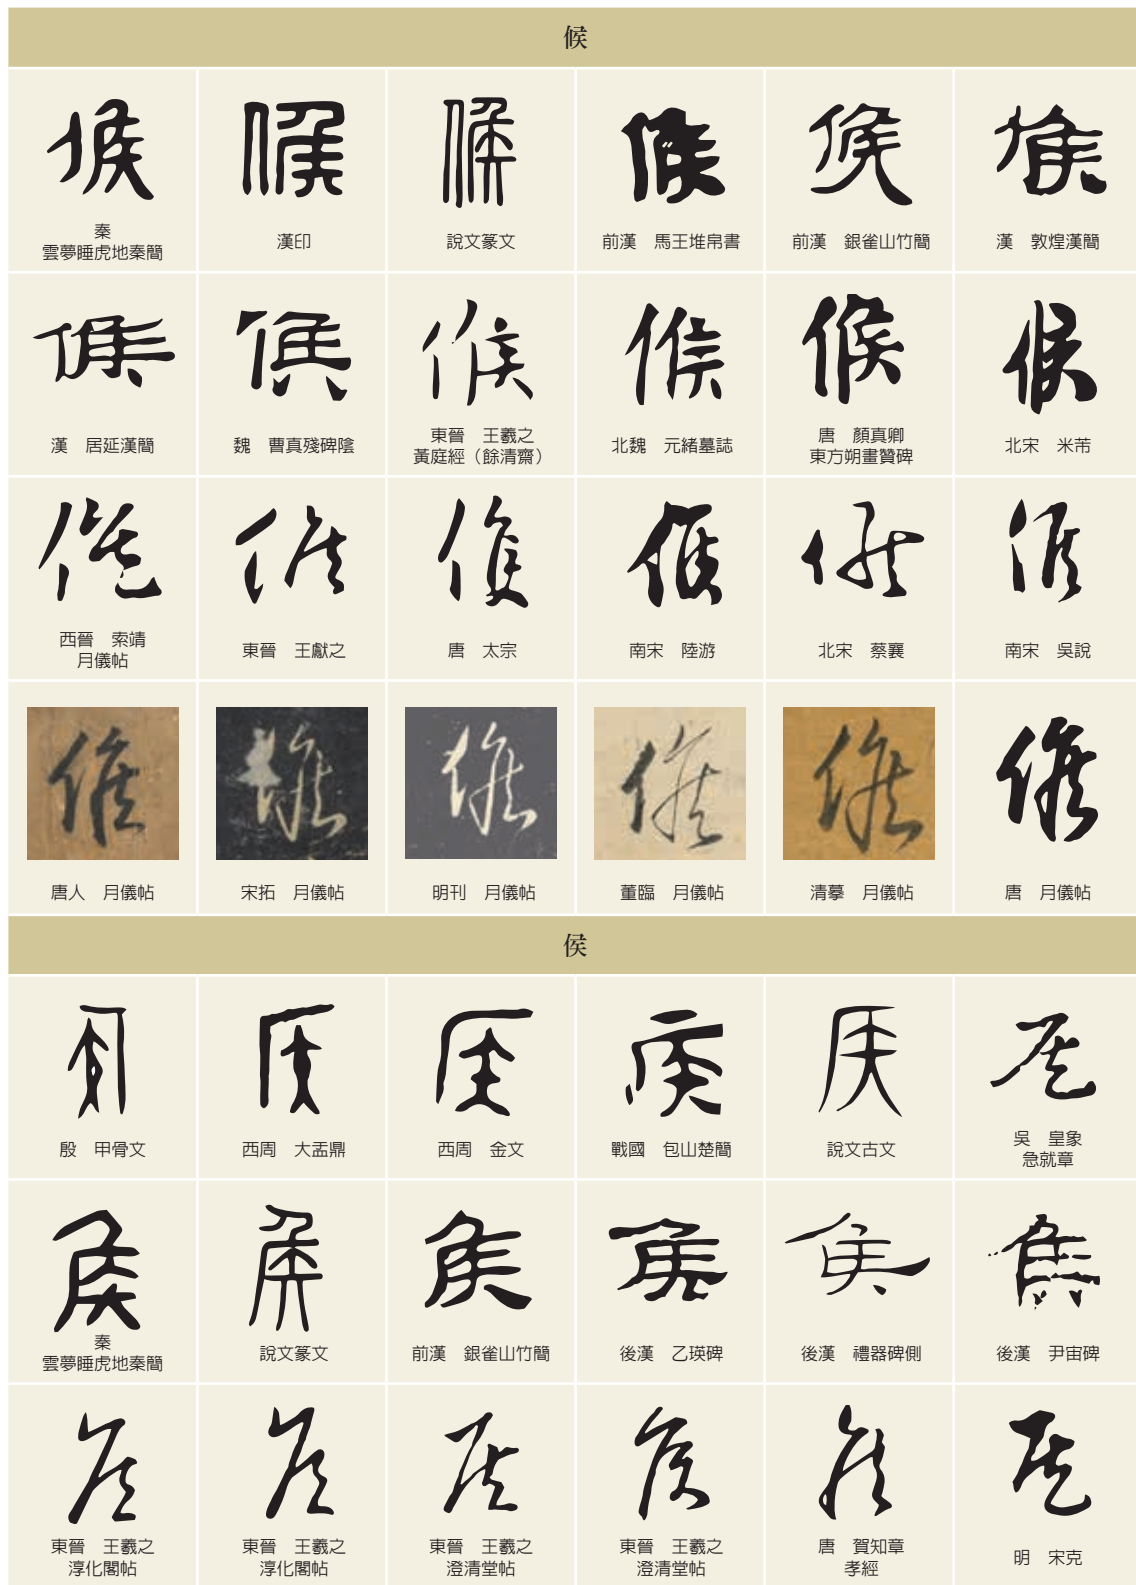 候
秦
雲夢睡虎地秦簡
漢印
說文篆文
前漢　馬王堆帛書
前漢　銀雀山竹簡
漢　敦煌漢簡
漢　居延漢簡
魏　曹真殘碑陰
東晉　王羲之
黃庭經（餘清齋）
北魏　元緒墓誌
唐　顏真卿
東方朔畫贊碑
北宋　米芾
西晉　索靖
月儀帖
東晉　王獻之
唐　太宗
南宋　陸游
北宋　蔡襄
南宋　吳說
唐人　月儀帖
宋拓　月儀帖
明刊　月儀帖
董臨　月儀帖
清摹　月儀帖
唐　月儀帖
矦
殷　甲骨文
西周　大盂鼎
西周　金文
戰國　包山楚簡
說文古文
吳　皇象
急就章
秦
雲夢睡虎地秦簡
說文篆文
前漢　銀雀山竹簡
後漢　乙瑛碑
後漢　禮器碑側
後漢　尹宙碑
東晉　王羲之
淳化閣帖
東晉　王羲之
淳化閣帖
東晉　王羲之
澄清堂帖
東晉　王羲之
澄清堂帖
唐　賀知章
孝經
明　宋克